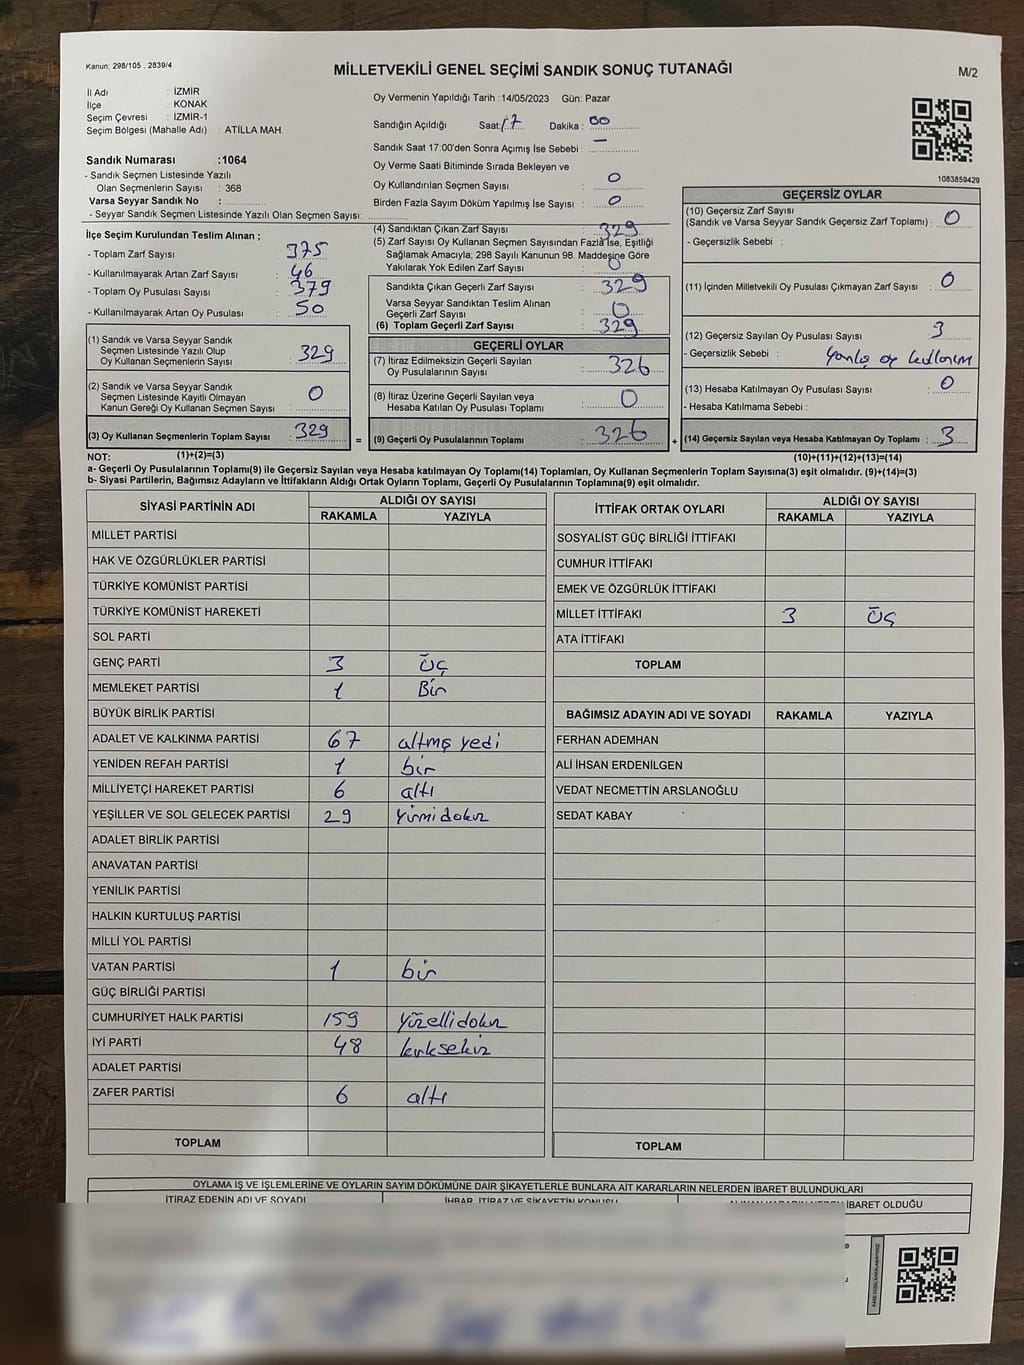 Kanun: 298/105 , 2839/4
MİLLETVEKİLİ GENEL SEÇİMİ SANDIK SONUÇ TUTANAĞI
M/2
İl Adı : İZMİR
İlçe : KONAK
Seçim Çevresi : İZMİR-1
Seçim Bölgesi (Mahalle Adı) : ATİLLA MAH.
Sandık Numarası :1064
- Sandık Seçmen Listesinde Yazılı
Olan Seçmenlerin Sayısı : 368
Varsa Seyyar Sandık No :
- Seyyar Sandık Seçmen Listesinde Yazılı Olan Seçmen Sayısı:
Oy Vermenin Yapıldığı Tarih :14/05/2023 Gün: Pazar
Sandığın Açıldığı Saat: 17 Dakika : 00
Sandık Saat 17:00'den Sonra Açımış İse Sebebi : —
Oy Verme Saati Bitiminde Sırada Bekleyen ve
Oy Kullandırılan Seçmen Sayısı : 0
Birden Fazla Sayım Döküm Yapılmış İse Sayısı : 0
1083859429
İlçe Seçim Kurulundan Teslim Alınan ;
- Toplam Zarf Sayısı : 375
- Kullanılmayarak Artan Zarf Sayısı : 46
- Toplam Oy Pusulası Sayısı : 379
- Kullanılmayarak Artan Oy Pusulası : 50
(1) Sandık ve Varsa Seyyar Sandık
Seçmen Listesinde Yazılı Olup
Oy Kullanan Seçmenlerin Sayısı : 329
(2) Sandık ve Varsa Seyyar Sandık
Seçmen Listesinde Kayıtlı Olmayan
Kanun Gereği Oy Kullanan Seçmen Sayısı : 0
(3) Oy Kullanan Seçmenlerin Toplam Sayısı : 329
(4) Sandıktan Çıkan Zarf Sayısı : 329
(5) Zarf Sayısı Oy Kullanan Seçmen Sayısından Fazla İse, Eşitliği
Sağlamak Amacıyla; 298 Sayılı Kanunun 98. Maddesine Göre
Yakılarak Yok Edilen Zarf Sayısı : 0
Sandıkta Çıkan Geçerli Zarf Sayısı : 329
Varsa Seyyar Sandıktan Teslim Alınan
Geçerli Zarf Sayısı : 0
(6) Toplam Geçerli Zarf Sayısı : 329
GEÇERLİ OYLAR
(7) İtiraz Edilmeksizin Geçerli Sayılan
Oy Pusulalarının Sayısı : 326
(8) İtiraz Üzerine Geçerli Sayılan veya
Hesaba Katılan Oy Pusulası Toplamı : 0
= (9) Geçerli Oy Pusulalarının Toplamı : 326
GEÇERSİZ OYLAR
(10) Geçersiz Zarf Sayısı
(Sandık ve Varsa Seyyar Sandık Geçersiz Zarf Toplamı) : 0
- Geçersizlik Sebebi :
(11) İçinden Milletvekili Oy Pusulası Çıkmayan Zarf Sayısı : 0
(12) Geçersiz Sayılan Oy Pusulası Sayısı : 3
- Geçersizlik Sebebi : Yanlış oy kullanım
(13) Hesaba Katılmayan Oy Pusulası Sayısı : 0
- Hesaba Katılmama Sebebi :
+ (14) Geçersiz Sayılan veya Hesaba Katılmayan Oy Toplamı : 3
NOT: (1)+(2)=(3) (10)+(11)+(12)+(13)=(14)
a- Geçerli Oy Pusulalarının Toplamı(9) ile Geçersiz Sayılan veya Hesaba katılmayan Oy Toplamı(14) Toplamları, Oy Kullanan Seçmenlerin Toplam Sayısına(3) eşit olmalıdır. (9)+(14)=(3)
b- Siyasi Partilerin, Bağımsız Adayların ve İttifakların Aldığı Ortak Oyların Toplamı, Geçerli Oy Pusulalarının Toplamına(9) eşit olmalıdır.
SİYASİ PARTİNİN ADI ALDIĞI OY SAYISI
RAKAMLA YAZIYLA
MİLLET PARTİSİ
HAK VE ÖZGÜRLÜKLER PARTİSİ
TÜRKİYE KOMÜNİST PARTİSİ
TÜRKİYE KOMÜNİST HAREKETİ
SOL PARTİ
GENÇ PARTİ 3 üç
MEMLEKET PARTİSİ 1 Bir
BÜYÜK BİRLİK PARTİSİ
ADALET VE KALKINMA PARTİSİ 67 altmış yedi
YENİDEN REFAH PARTİSİ 1 bir
MİLLİYETÇİ HAREKET PARTİSİ 6 altı
YEŞİLLER VE SOL GELECEK PARTİSİ 29 yirmi dokuz
ADALET BİRLİK PARTİSİ
ANAVATAN PARTİSİ
YENİLİK PARTİSİ
HALKIN KURTULUŞ PARTİSİ
MİLLİ YOL PARTİSİ
VATAN PARTİSİ 1 bir
GÜÇ BİRLİĞİ PARTİSİ
CUMHURİYET HALK PARTİSİ 159 yüzellidokuz
İYİ PARTİ 48 kırksekiz
ADALET PARTİSİ
ZAFER PARTİSİ 6 altı
TOPLAM
İTTİFAK ORTAK OYLARI ALDIĞI OY SAYISI
RAKAMLA YAZIYLA
SOSYALİST GÜÇ BİRLİĞİ İTTİFAKI
CUMHUR İTTİFAKI
EMEK VE ÖZGÜRLÜK İTTİFAKI
MİLLET İTTİFAKI 3 üç
ATA İTTİFAKI
TOPLAM
BAĞIMSIZ ADAYIN ADI VE SOYADI RAKAMLA YAZIYLA
FERHAN ADEMHAN
ALİ İHSAN ERDENİLGEN
VEDAT NECMETTİN ARSLANOĞLU
SEDAT KABAY
TOPLAM
OYLAMA İŞ VE İŞLEMLERİNE VE OYLARIN SAYIM DÖKÜMÜNE DAİR ŞİKAYETLERLE BUNLARA AİT KARARLARIN NELERDEN İBARET BULUNDUKLARI
İTİRAZ EDENİN ADI VE SOYADI İHBAR, İTİRAZ VE ŞİKAYETİN KONUSU ALINAN KARARIN NEDEN İBARET OLDUĞU